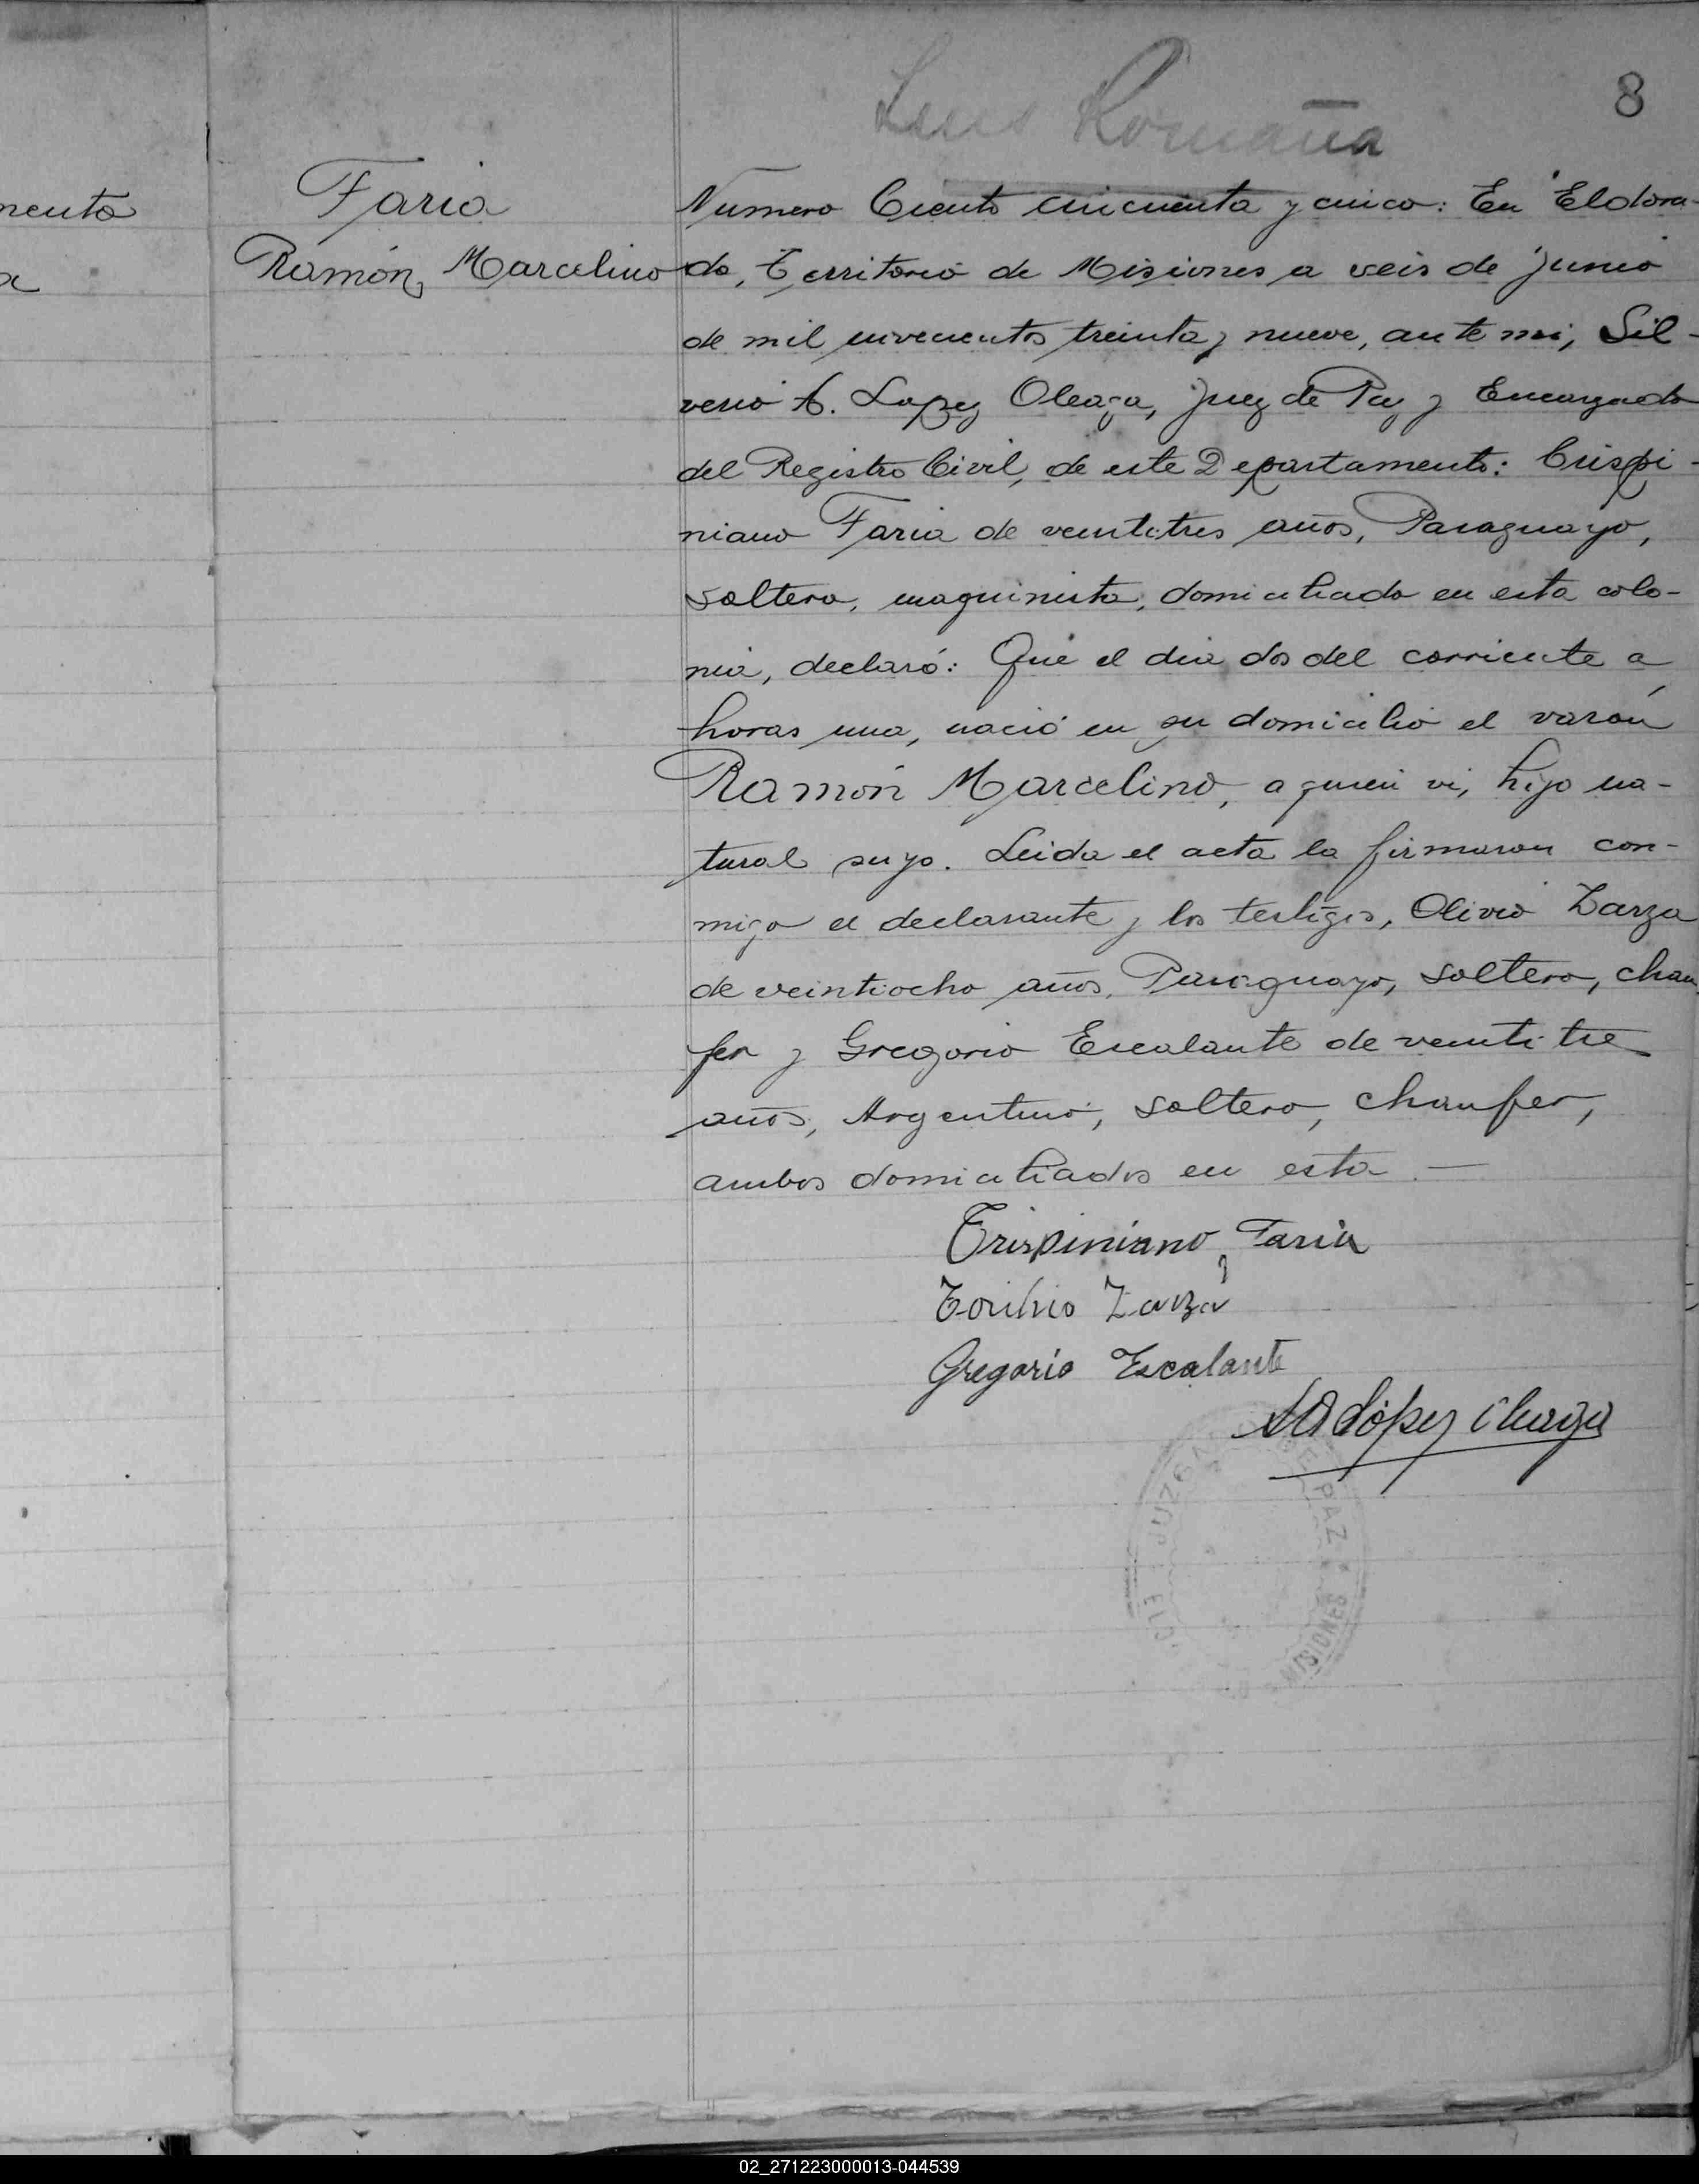 8
Luis Romaña
menta
a
Faria
Ramón Marcelino
Numero Ciento cincuenta y cinco: En Eldora-
do, Territorio de Misiones a seis de junio
de mil novecientos treinta y nueve, ante mi, Sil-
verio A. Lopez Oleaga, Juez de Paz y Encargado
del Registro Civil, de este Departamento: Crispi-
niano Faria de veintitres años, Paraguayo,
soltero, maquinista, domiciliado en esta colo-
nia, declaró: Que el dia dos del corriente a
horas una, nació en su domicilio el varón
Ramón Marcelino, a quien vi, hijo na-
tural suyo. Leida el acta la firmaron con-
migo el declarante y los testigos, Olivio Zarza
de veintiocho años, Paraguayo, soltero, chau
fer y Gregorio Escalante de veintitre
años, Argentino, soltero, chaufer,
ambos domiciliados en esta —
Crispiniano Faria
Zarza
Gregorio Escalante
López Oleaga
JUZGA DE PAZ
MISIONES
02_271223000013-044539